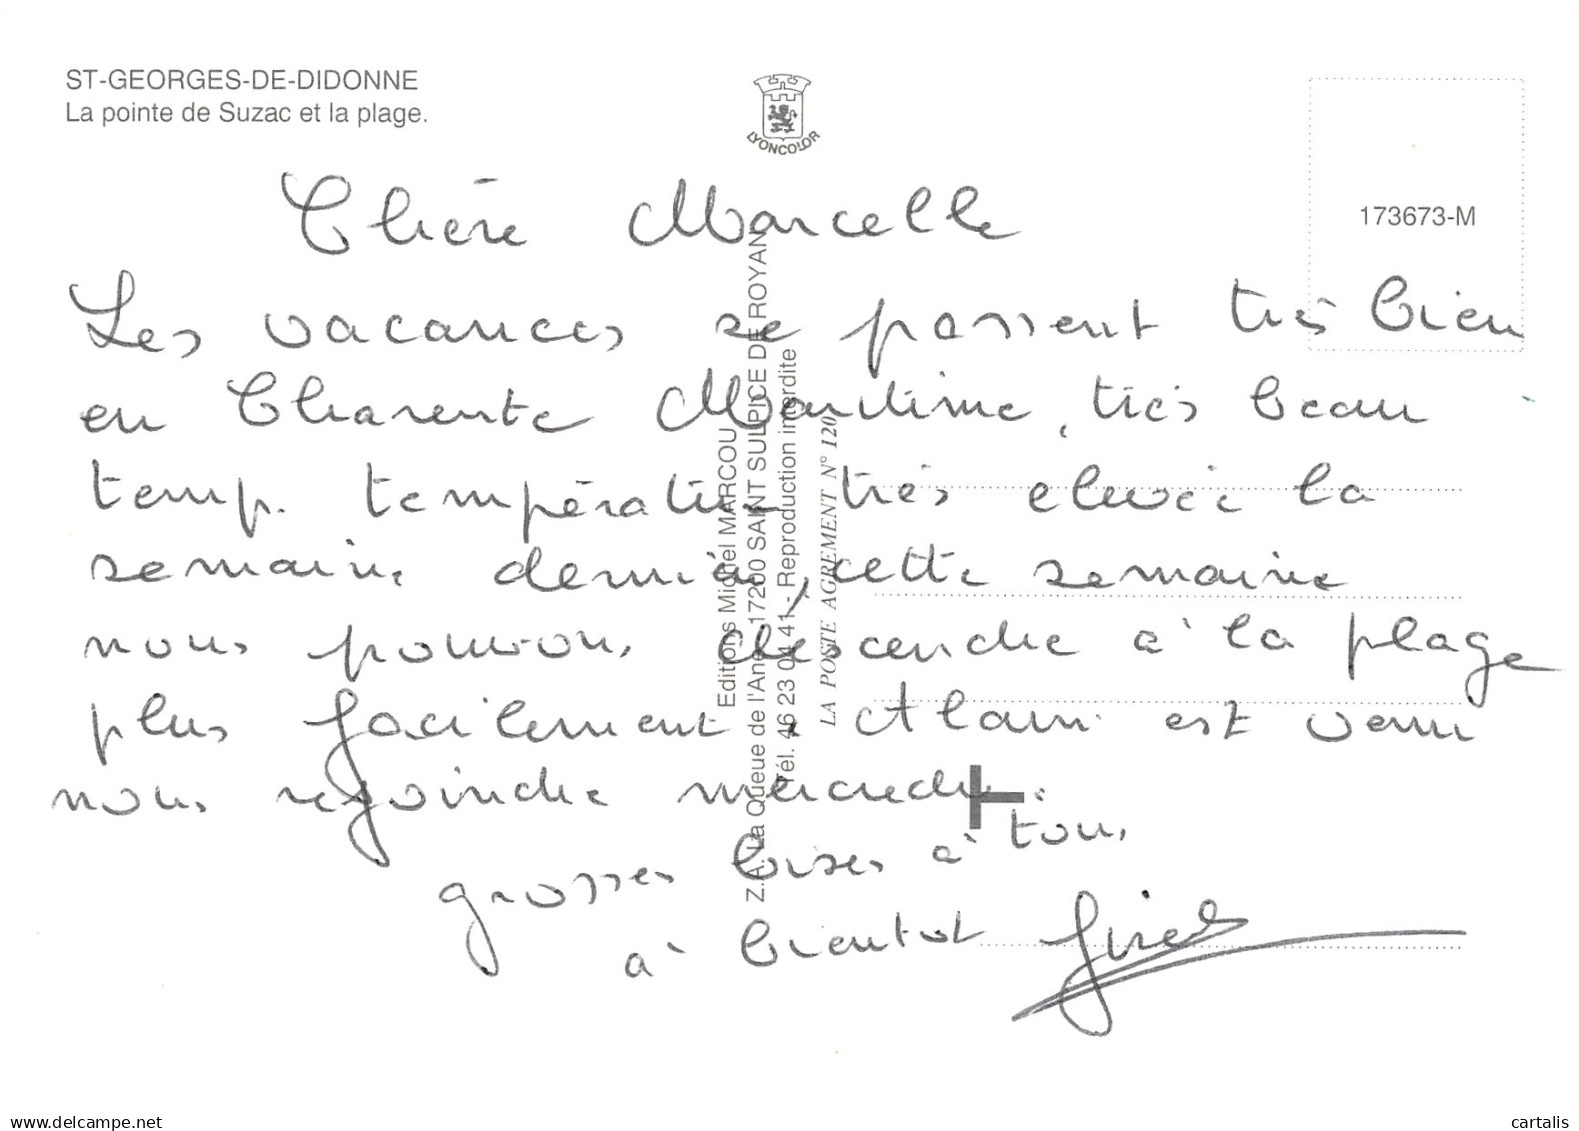 ST-GEORGES-DE-DIDONNE
La pointe de Suzac et la plage.
LYONCOLOR
173673-M
Chère Marcelle
Les vacances se passent très bien
en Charente Maritime, très beau
temp. températur très elevée la
semaine dernièr, cette semaine
nous pouvons déscendre à la plage
plus facilement. Alain est venu
nous rejoindre mercredi.
grosses bises à tous
à bientot
Editions Michel MARCOU
Z.A. La Queue de l'Ane - 17200 SAINT SULPICE DE ROYAN
Tél. 46 23 04 41 - Reproduction interdite
LA POSTE AGREMENT N° 120
delcampe.net
cartalis